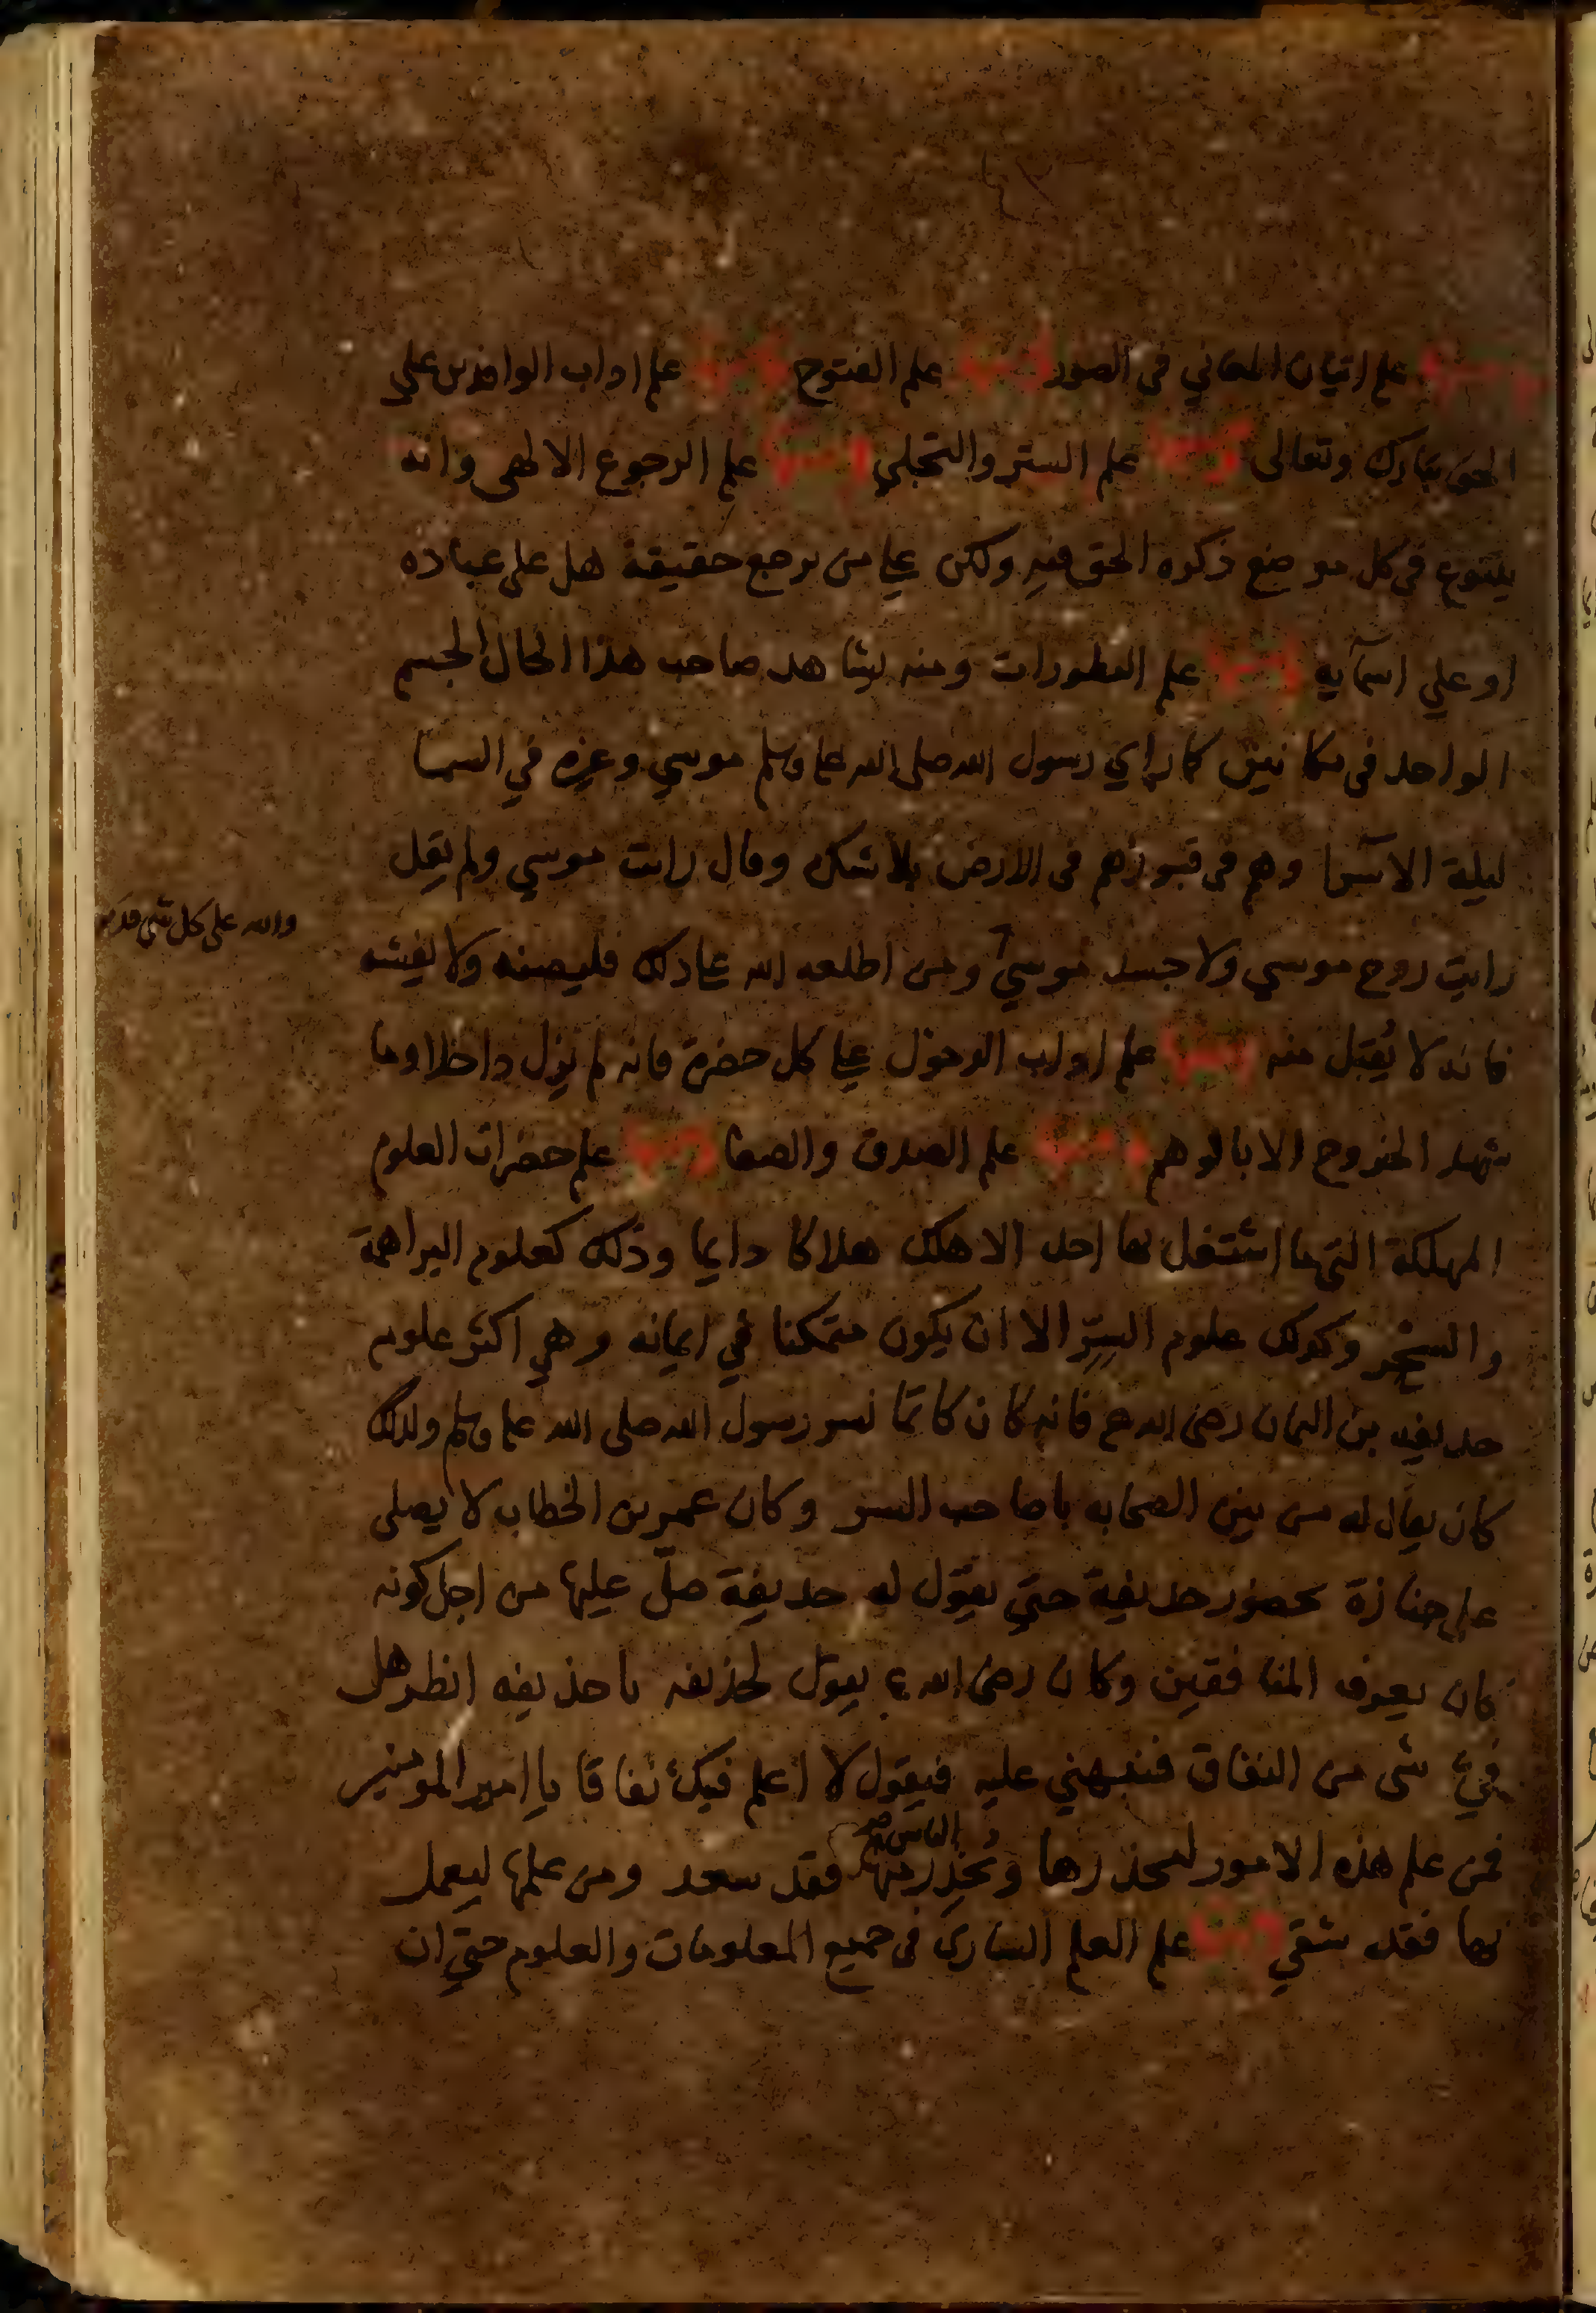 علم اتيان المعاني في الصور علم الفتوح علم اداب الوافدين علي
الحق تبارك وتعالى علم الستر والتجلي علم الرجوع الالهى وانه
يتنوع في كل موضع ذكره الحق فيه ولكن علي من يرجع حقيقة هل على عباده
او علي اسمآيه علم التطورات ومنه يشاهد صاحب هذا الحال الجسم
الواحد فى مكانين كما راي رسول الله صلى الله علم وسلم موسي وغيره في السما
ليلة الاسرا وهم في قبورهم في الارض بلا شك وقال رايت موسي ولم يقل
رايت روح موسي ولا جسد موسي ومن اطلعه الله على ذلك فليصنه ولا يفشه
والله على كل شي قدير
فانه لا يُقبل منه علم اداب الدخول علي كل حضرة فانه لم يزل داخلا وما
شهد الخروج الا بالوهم علم الصدق والصفا علم حضرات العلوم
المهلكة التي ما اشتغل بها احد الا هلك هلاكا دايما وذلك كعلوم البراهمة
والسحر وكذلك علوم السِّر الا ان يكون متمكنا في ايمانه وهي اكثر علوم
حذيفه بن اليمان رضى الله عنه فانه كان كاتما لسر رسول الله صلى الله علم وسلم ولذلك
كان يقال له من بين الصحابه يا صاحب السر وكان عمر بن الخطاب لا يصلى
على جنازة بحضور حذيفة حتي يقول له حذيفة صلّ عليها من اجل كونه
كان يعرف المنافقين وكان رضى الله ع يقول لحذيفه يا حذيفه انظر هل
فيَّ شى من النفاق فنبهني عليه فيقول لا اعلم فيك نفاقا يا امير المومنين
فمن علم هذه الامور ليحذرها ويُحذِر الناس منها فقد سعد ومن علمها ليعمل
بها فقد شقي علم العلم السارى فى جميع المعلومات والعلوم حتي ان